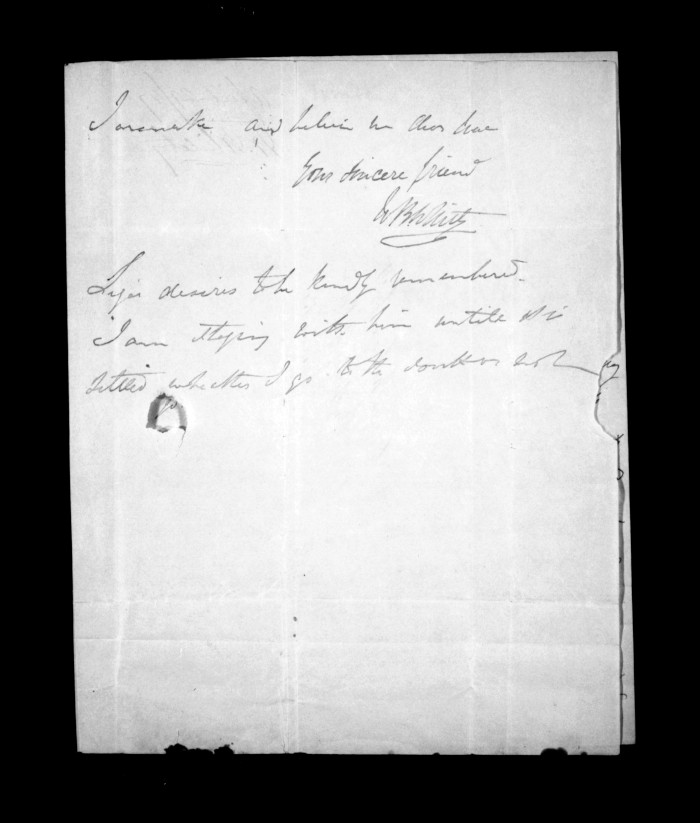 and believe me dear
Your sincere friend
W B White
desires to be kindly remembered.
I am stoping with him untill it is
settled whether I go to the south or not